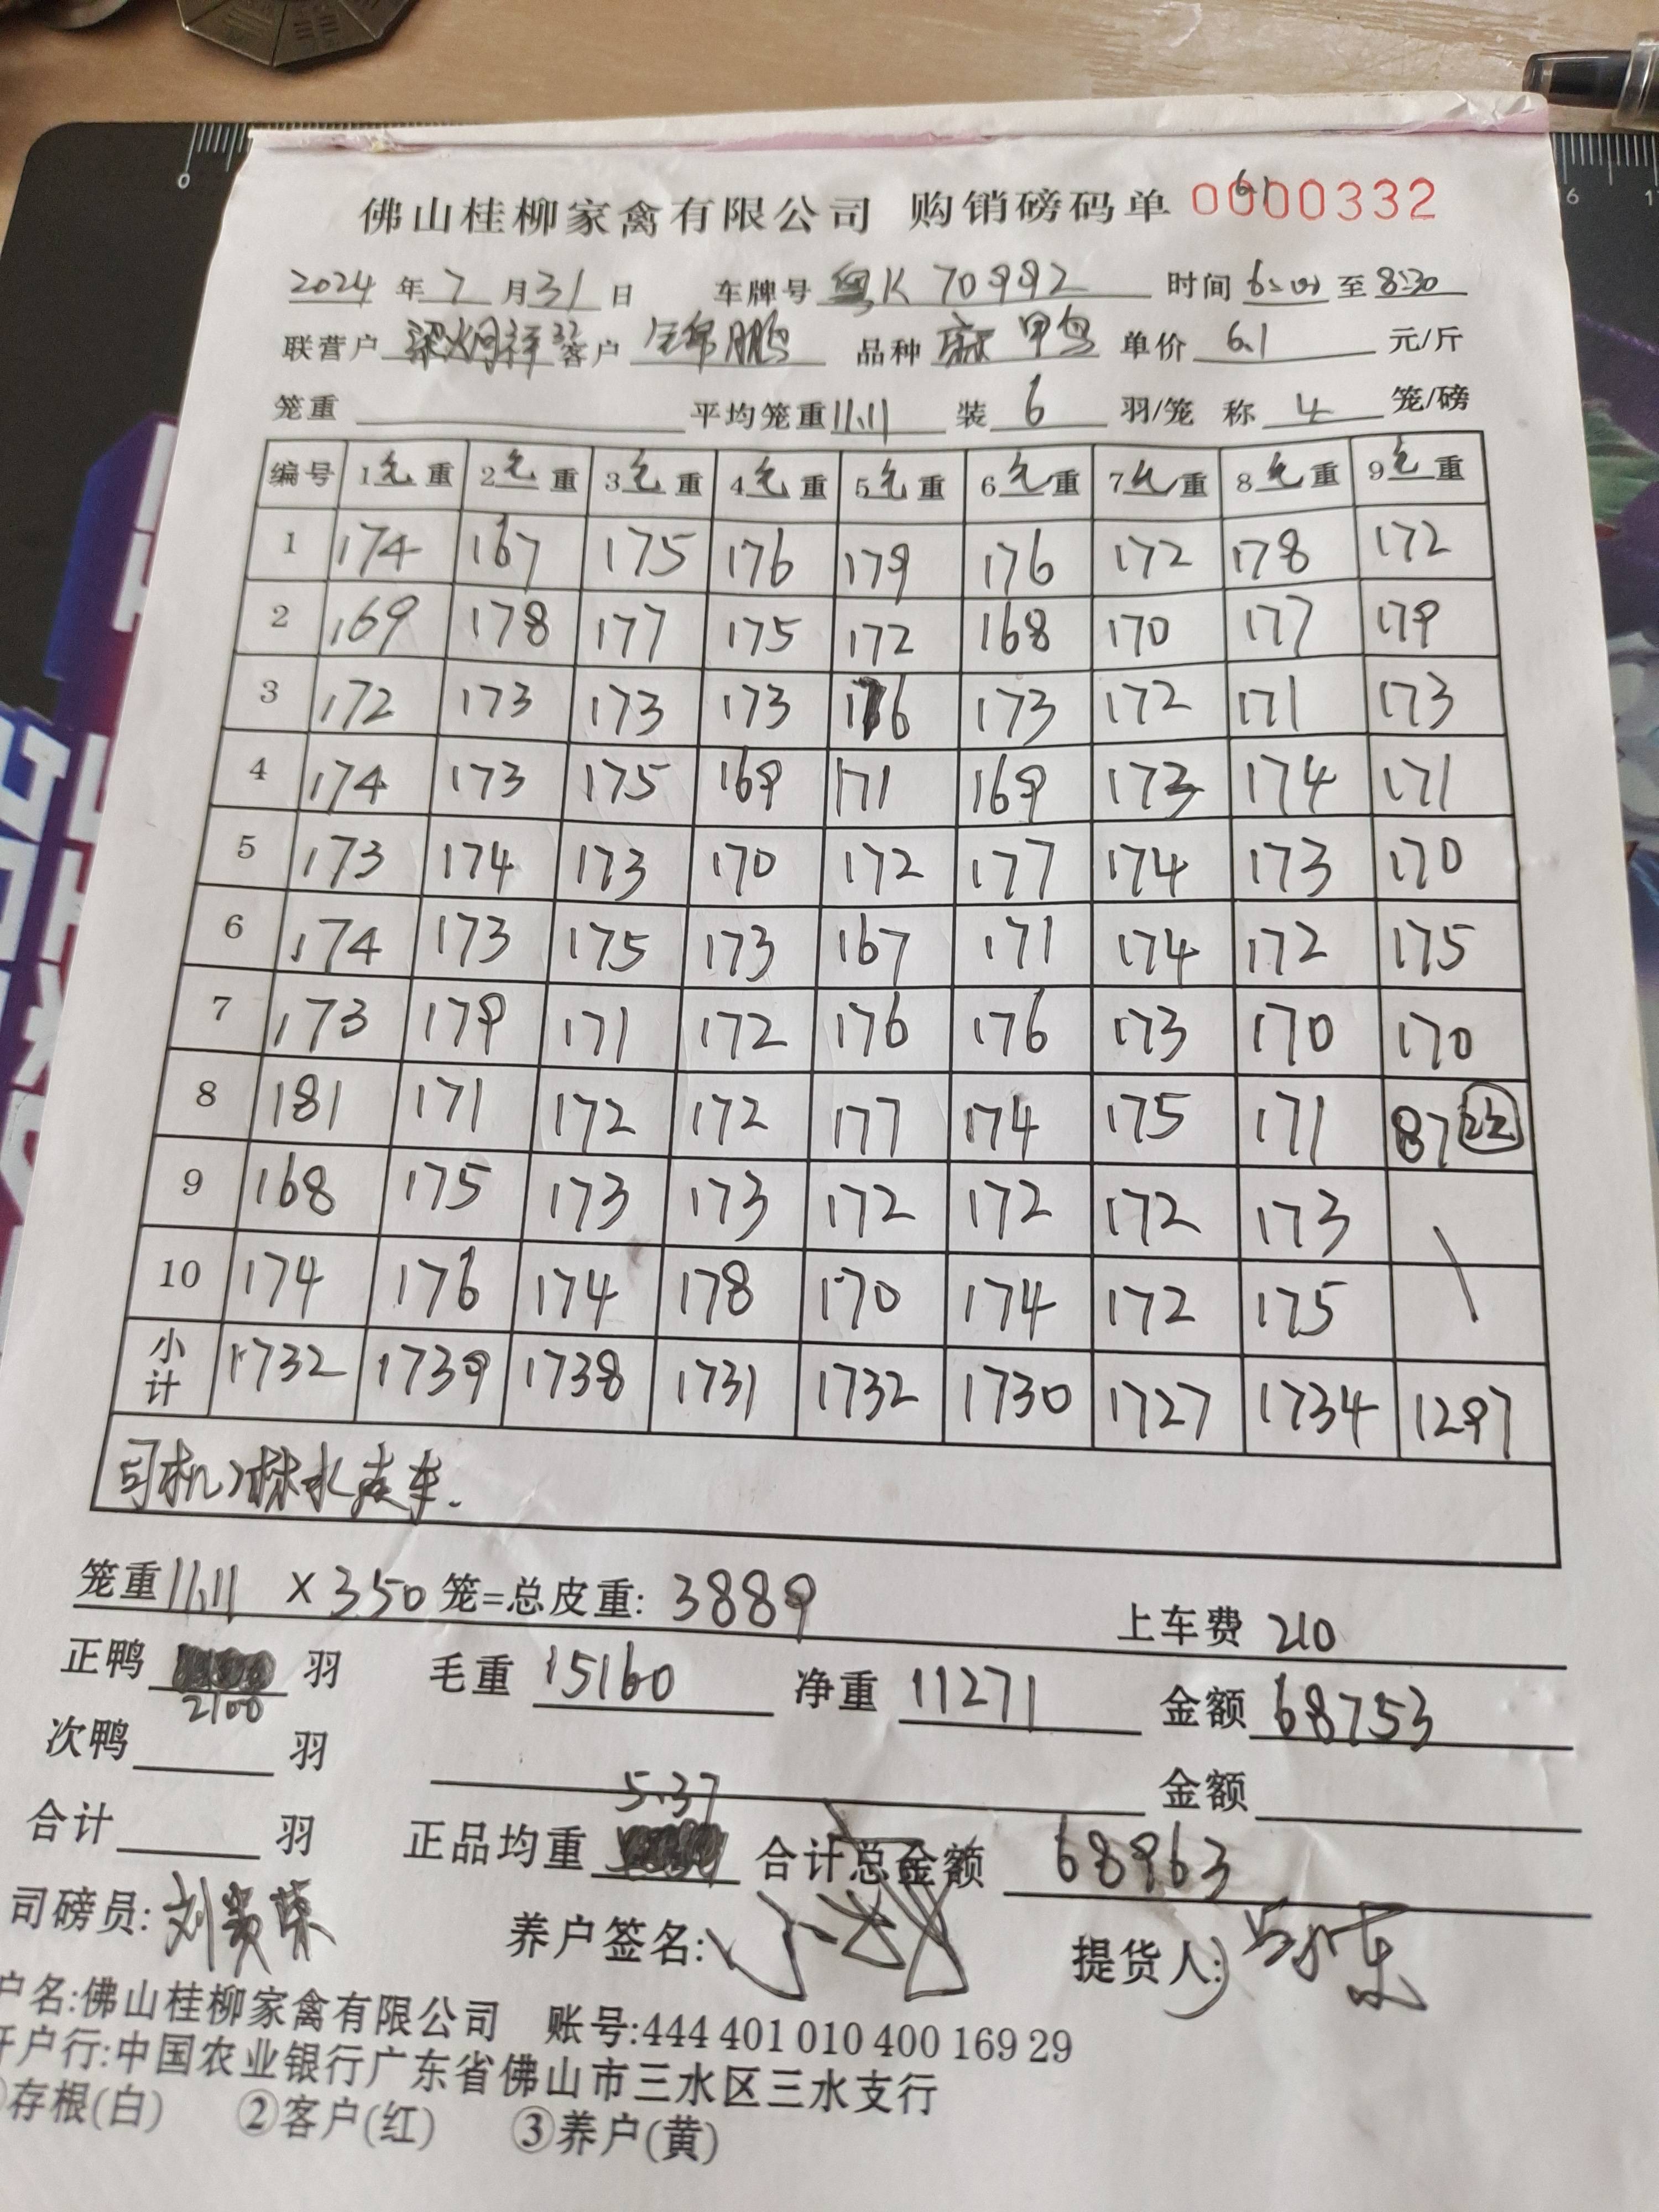 佛山桂柳家禽有限公司 购销磅码单 0000332
6.1
2024 年 7 月 31 日 车牌号 粤K 70992 时间 6:00 至 8:30
联营户 梁炯祥 32 客户 锦鹏 品种 单价 6.1 元/斤
笼重 平均笼重 11.11 装 6 羽/笼 称 4 笼/磅
编号 1毛重 2毛重 3毛重 4毛重 5毛重 6毛重 7毛重 8毛重 9毛重
1 174 167 175 176 179 176 172 178 172
2 169 178 177 175 172 168 170 177 179
3 172 173 173 173 176 173 172 171 173
4 174 173 175 169 171 169 173 174 171
5 173 174 173 170 172 177 174 173 170
6 174 173 175 173 167 171 174 172 175
7 173 179 171 172 176 176 173 170 170
8 181 171 172 172 177 174 175 171 87
9 168 175 173 173 172 172 172 173
10 174 176 174 178 170 174 172 175
小计 1732 1739 1738 1731 1732 1730 1727 1734 1297
司机:林水 车.
笼重 11.11 × 350 笼=总皮重: 3889 上车费 210
正鸭 2100 羽 毛重 15160 净重 11271 金额 68753
次鸭 羽 金额
合计 羽 正品均重 5.37 合计总金额 68963
司磅员: 刘 荣 养户签名: 提货人:
户名:佛山桂柳家禽有限公司 账号:444 401 010 400 169 29
开户行:中国农业银行广东省佛山市三水区三水支行
存根(白) ②客户(红) ③养户(黄)